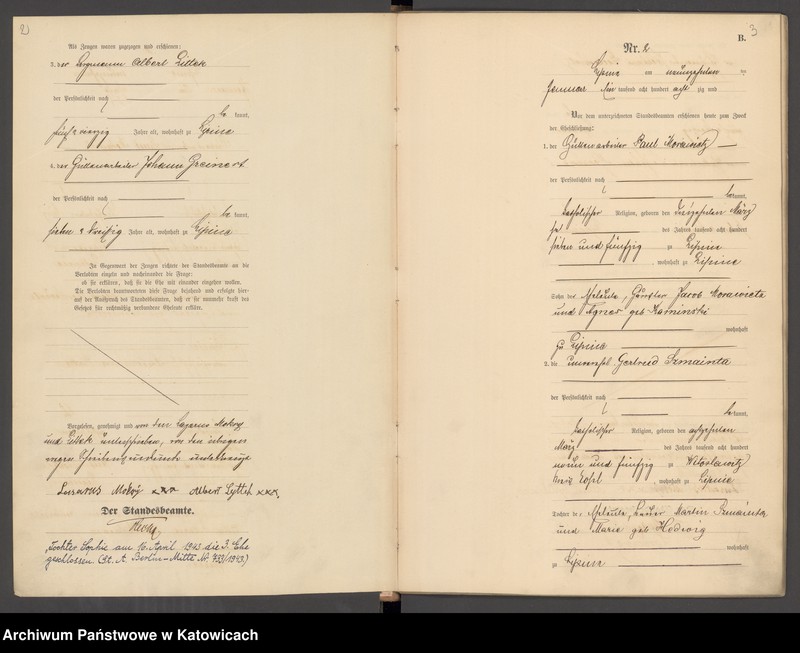 2)
Als Zeugen waren zugezogen und erschienen:
3. der Bergmann Albert Littek
der Persönlichkeit nach
be kannt,
fünf u vierzig Jahre alt, wohnhaft zu Lipine
4. der Hüttenarbeiter Johann Greinert
der Persönlichkeit nach
be kannt,
sieben u dreißig Jahre alt, wohnhaft zu Lipine
In Gegenwart der Zeugen richtete der Standesbeamte an die
Verlobten einzeln und nacheinander die Frage:
ob sie erklären, daß sie die Ehe mit einander eingehen wollen.
Die Verlobten beantworteten diese Frage bejahend und erfolgte hier-
auf der Ausspruch des Standesbeamten, daß er sie nunmehr kraft des
Gesetzes für rechtmäßig verbundene Eheleute erkläre.
Vorgelesen, genehmigt und von den Lazarus Mokoÿ
und Littek unterschrieben, von den übrigen
wegen Schreibensunkunde unterkreuzt
Lazarus Mokoÿ xxx Albert Lyttek xxx.
Der Standesbeamte.
Tochter Sophie am 16. April 1943 die 3. Ehe
geschlossen (St. A. Berlin-Mitte Nr. 733/1943.)
B.
3
Nr. 2
Lipine am neunzehnten
Januar Ein tausend acht hundert acht zig und
Vor dem unterzeichneten Standesbeamten erschienen heute zum Zweck
der Eheschließung:
1. der Hüttenarbeiter Paul Morawietz
der Persönlichkeit nach
be kannt,
katholischer Religion, geboren den März
des Jahres tausend acht hundert
sieben und fünfzig zu Lipine
, wohnhaft zu Lipine
Sohn des Jacob Morawietz
und Agnes geb Kaminski
wohnhaft
zu Lipine
2. die unverehel Gertrud Szmainta
der Persönlichkeit nach
be kannt,
katholischer Religion, geboren den achtzehnten
März des Jahres tausend acht hundert
neun und fünfzig zu
Kreis Kosel , wohnhaft zu Lipine
Tochter der Martin Szmainta
und Marie geb Hedwig
wohnhaft
zu Lipine
Archiwum Państwowe w Katowicach